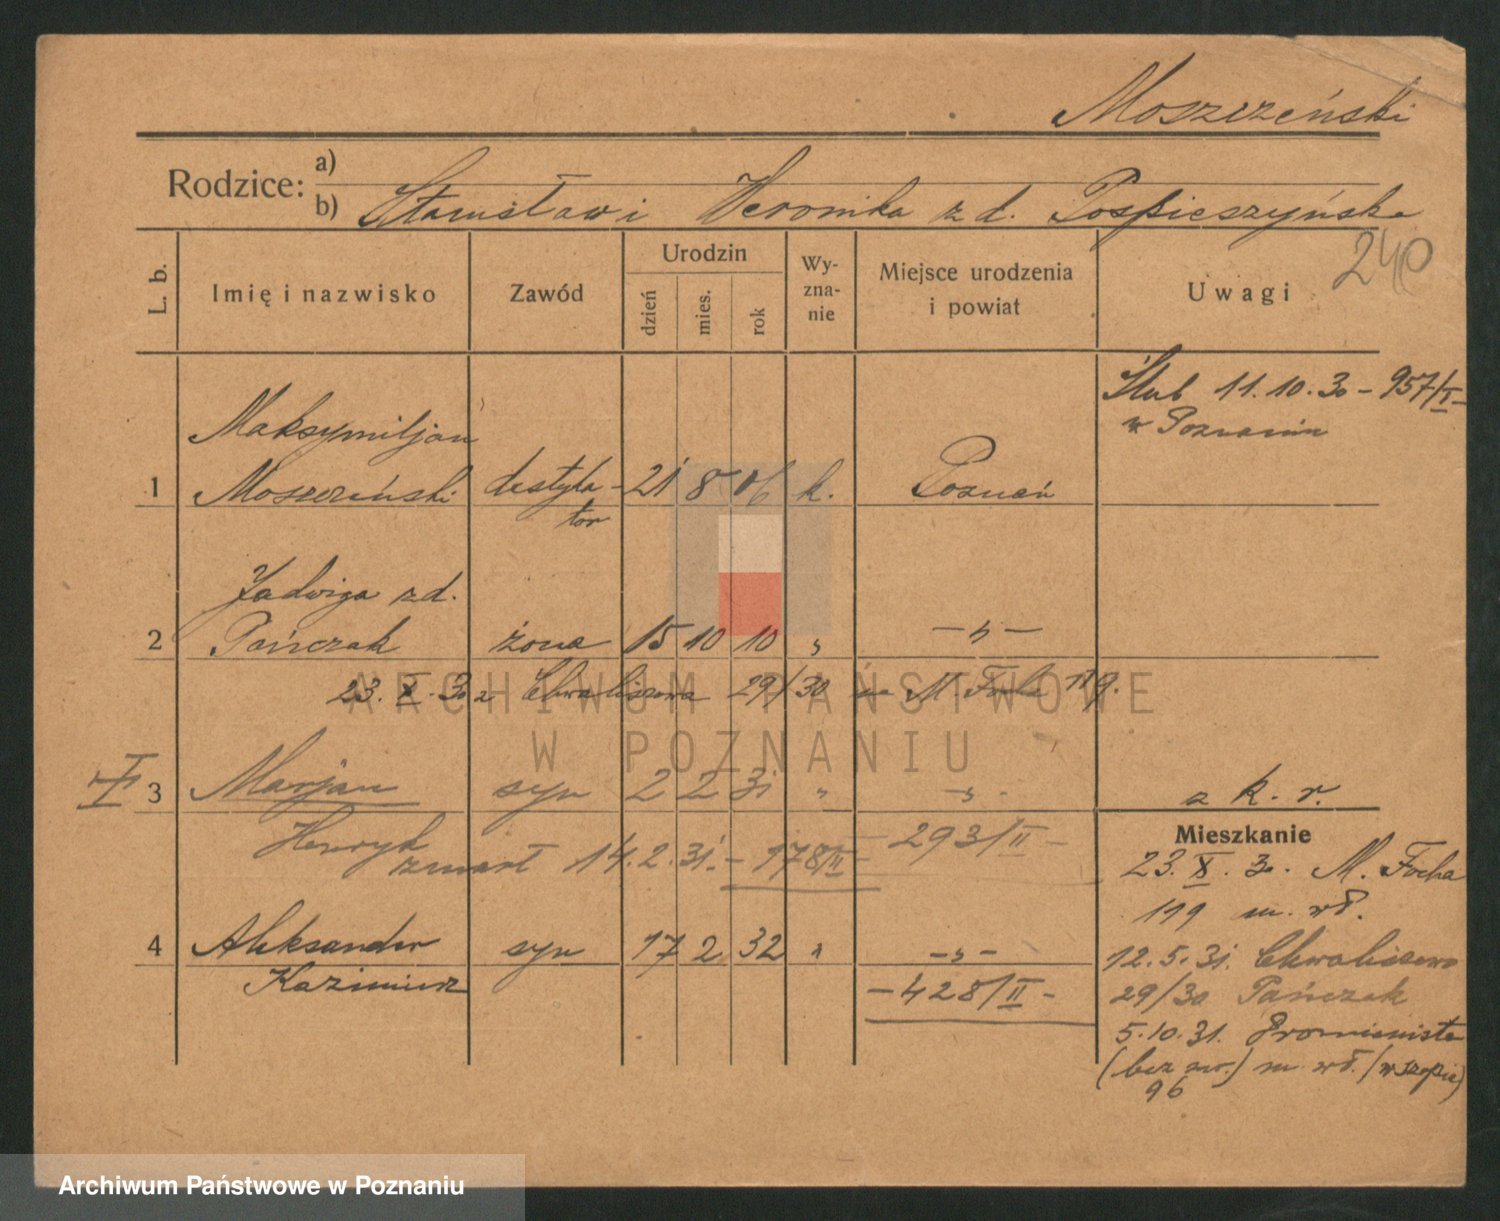 Moszczeński
Rodzice: a)
b) Stanisław i Weronika z d. Pospieszyńska
240
L. b.
Imię i nazwisko
Zawód
Urodzin
dzień
mies.
rok
Wy-
zna-
nie
Miejsce urodzenia
i powiat
Uwagi
Ślub 11.10.30 – 957/II –
w Poznaniu
Maksymiljan
1 Moszczeński destyla- 21 8 06 k. Poznań
tor
Jadwiga z d.
2 Pańczak żona 15 10 10 „ – „ –
23. X. 30 z Chwaliszewa 29/30 na M. Focha 119.
ARCHIWUM PAŃSTWOWE
W POZNANIU
3 Marjan syn 2 2 31 „ – „ –
z k. r.
Henryk – 293/II –
zmarł 14.2.31. – 178/II –
4 Aleksander syn 17 2 32 „ – „ –
Kazimierz – 428/II –
Mieszkanie
23. X. 30. M. Focha
119 m. wł.
12.5.31. Chwaliszewo
29/30 Pańczak
5.10.31. Promienista
(bez nr.) m. wł. (w szopie)
96
Archiwum Państwowe w Poznaniu